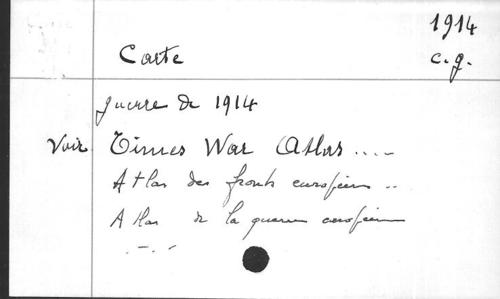 1914
Carte c.g.
guerre de 1914
Voir Times War Atlas ....
Atlas des fronts européens ..
Atlas de la guerre européenne
.-.-.